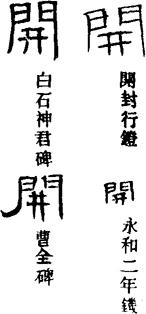 開
開封行鐙
開
永和二年鐖
開
白石神君碑
開
曹全碑